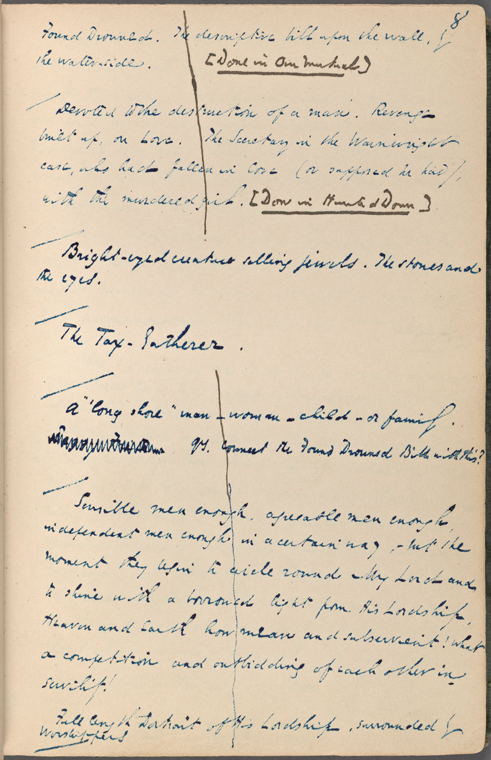 8
Found Drowned. The descriptive bill upon the wall, by
the waterside. [Done in Our Mutual]
Devoted to the destruction of a man. Revenge
built up, on Love. The Secretary in the Wainwright
case, who had fallen in love (or supposed he had),
with the murdered girl. [Done in Hunted Down]
Bright-eyed creature selling jewels. The stones and
the eyes.
The Tax-Gatherer.
A "long shore" man - woman - child - or family.
Qy. connect the Found Drowned Bill with this?
Sensible men enough, agreeable men enough,
independent men enough in a certain way, - but the
moment they begin to circle round My Lord and
to shine with a borrowed light from His Lordship,
Heaven and Earth how mean and subservient! What
a competition and outbidding of each other in
servility!
Full length Portrait of His Lordship, surrounded by
Worshippers